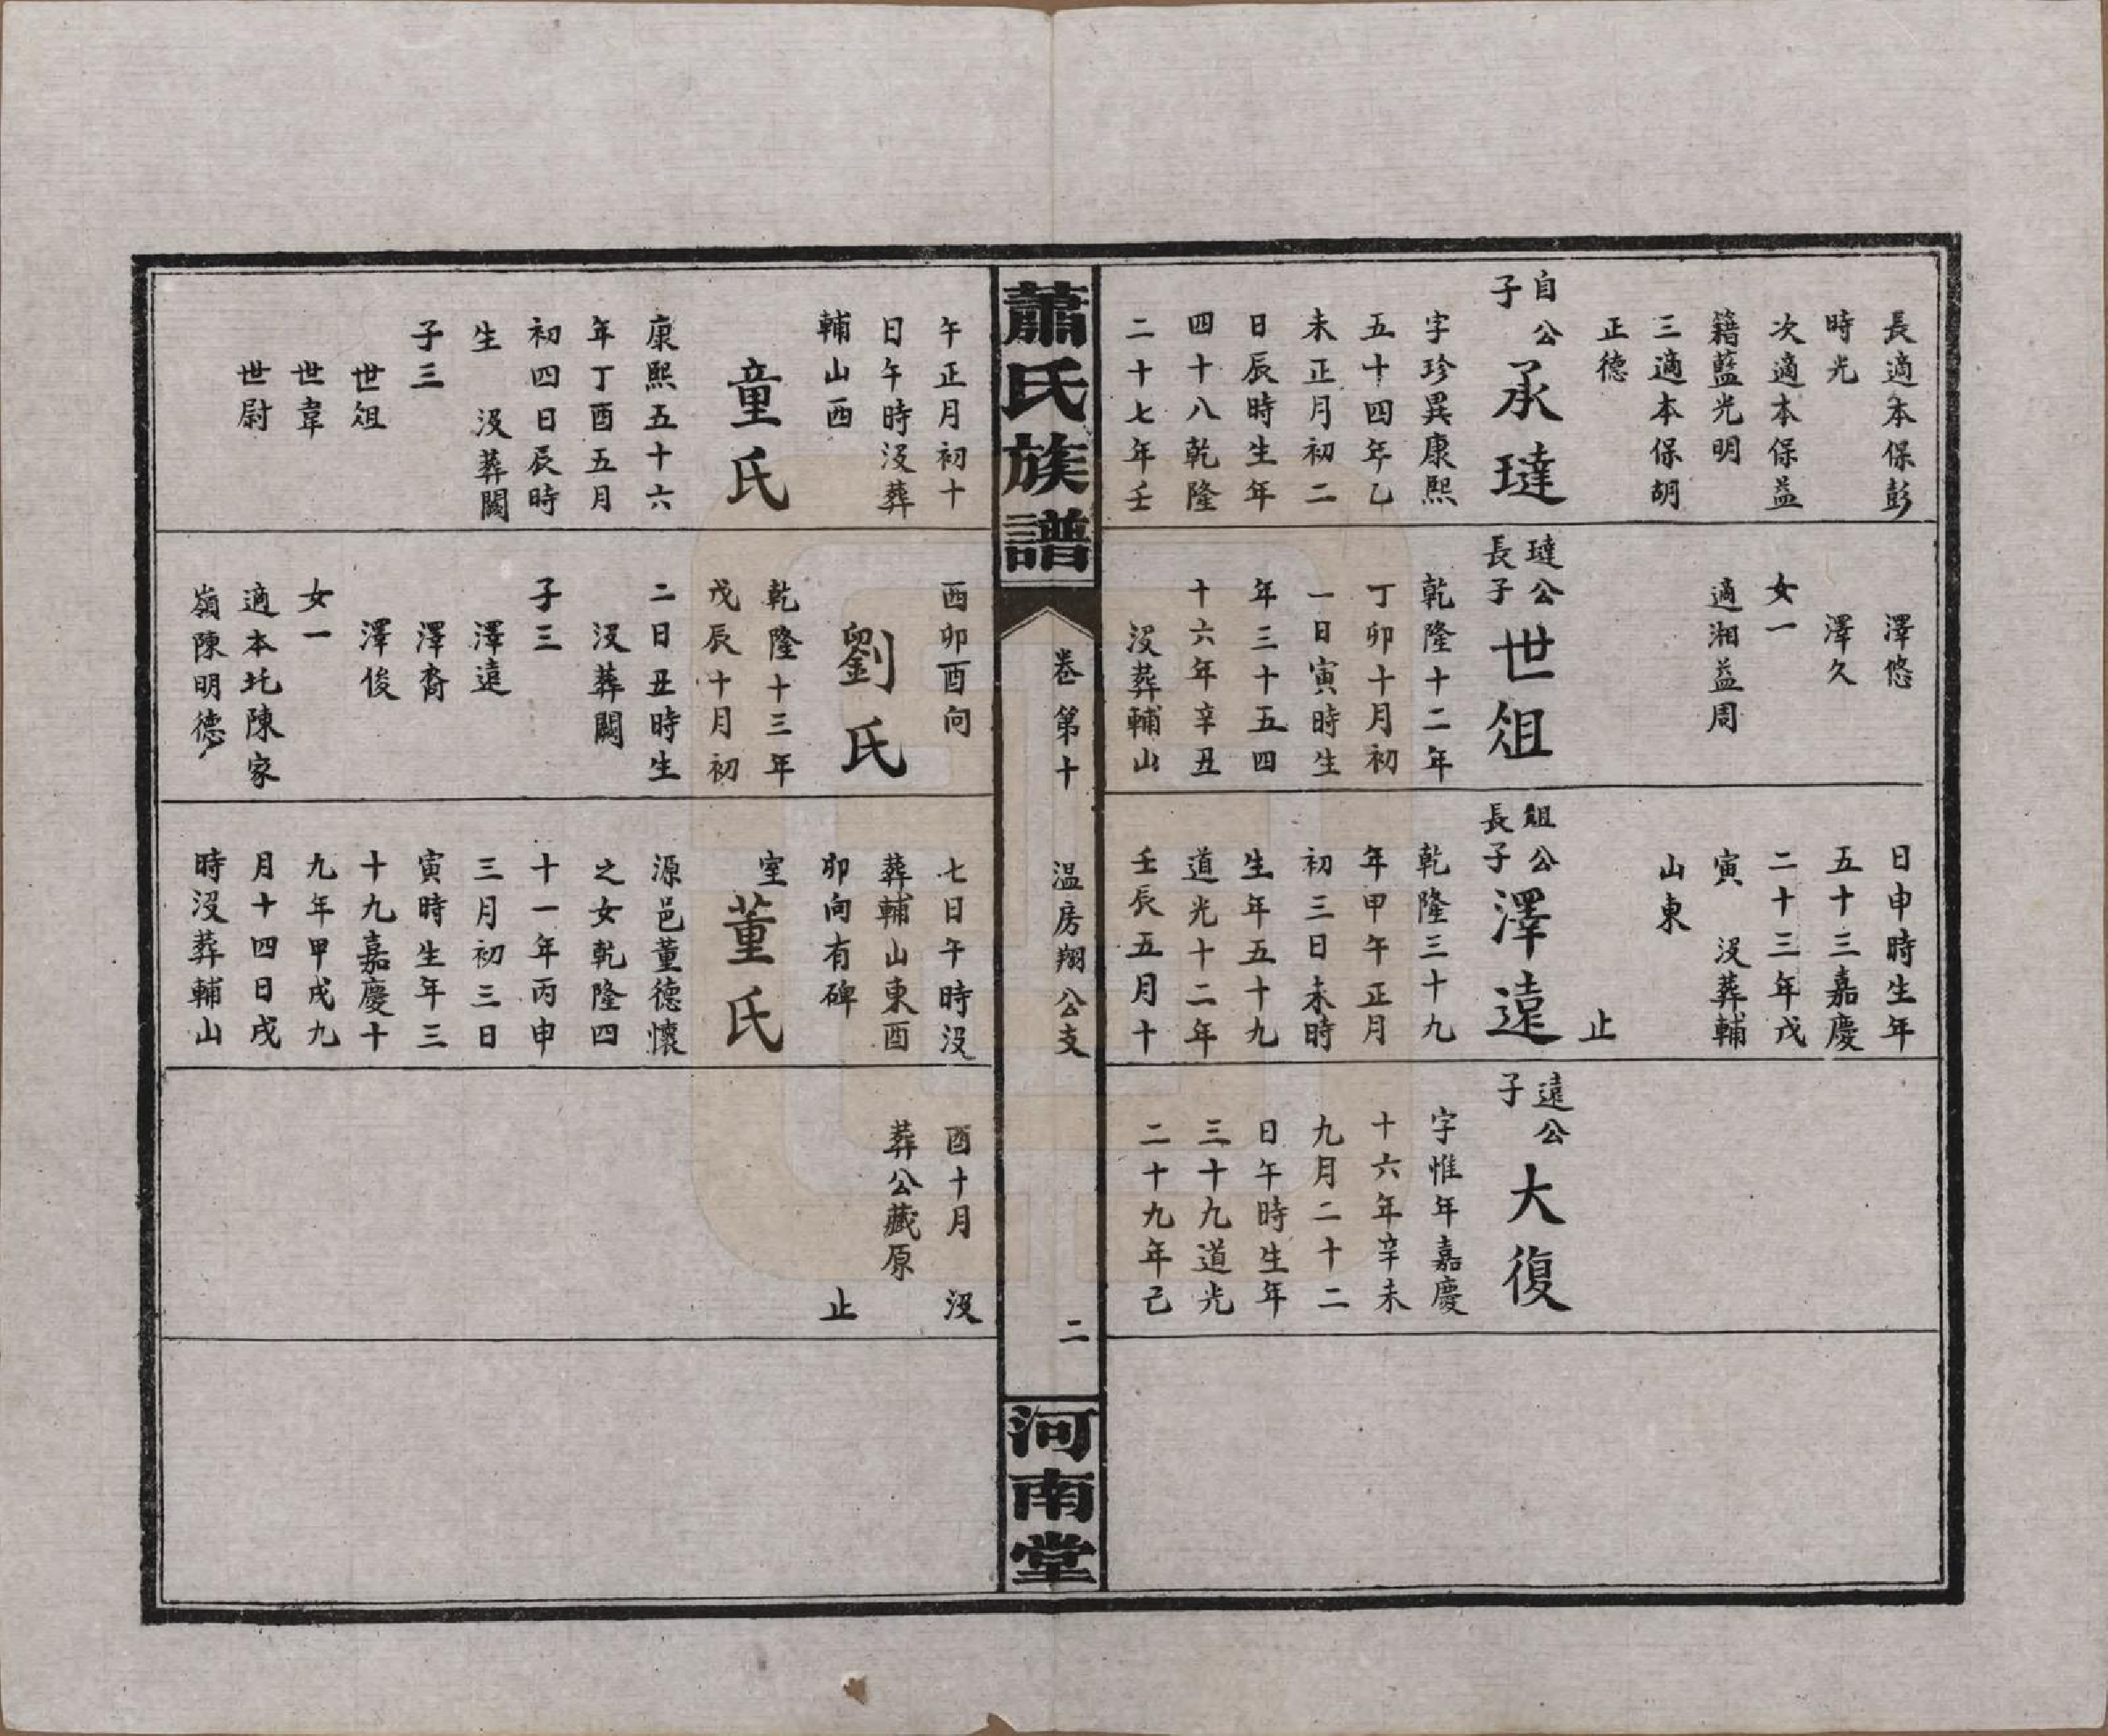 長適本保彭
時光
次適本保益
籍藍光明
三適本保胡
正德
自公
子
承璉
字珍異康熙
五十四年乙
未正月初二
日辰時生年
四十八乾隆
二十七年壬
澤悠
澤久
女一
適湘益周
璉公
長子
世俎
乾隆十二年
丁卯十月初
一日寅時生
年三十五四
十六年辛丑
沒葬輔山
日申時生年
五十三嘉慶
二十三年戊
寅 沒葬輔
山東
止
俎公
長子
澤遠
乾隆三十九
年甲午正月
初三日未時
生年五十九
道光十二年
壬辰五月十
遠公
子
大復
字惟年嘉慶
十六年辛未
九月二十二
日午時生年
三十九道光
二十九年己
蕭氏族譜
卷第十
温房翔公支
二
河南堂
午正月初十
日午時沒葬
輔山西
童氏
康熙五十六
年丁酉五月
初四日辰時
生 沒葬闕
子三
世俎
世韋
世尉
西卯酉向
劉氏
乾隆十三年
戊辰十月初
二日丑時生
沒葬闕
子三
澤遠
澤裔
澤俊
女一
適本圫陳家
嶺陳明德
七日午時沒
葬輔山東酉
卯向有碑
室
董氏
源邑董德懷
之女乾隆四
十一年丙申
三月初三日
寅時生年三
十九嘉慶十
九年甲戌九
月十四日戌
時沒葬輔山
酉十月 沒
葬公藏原
止